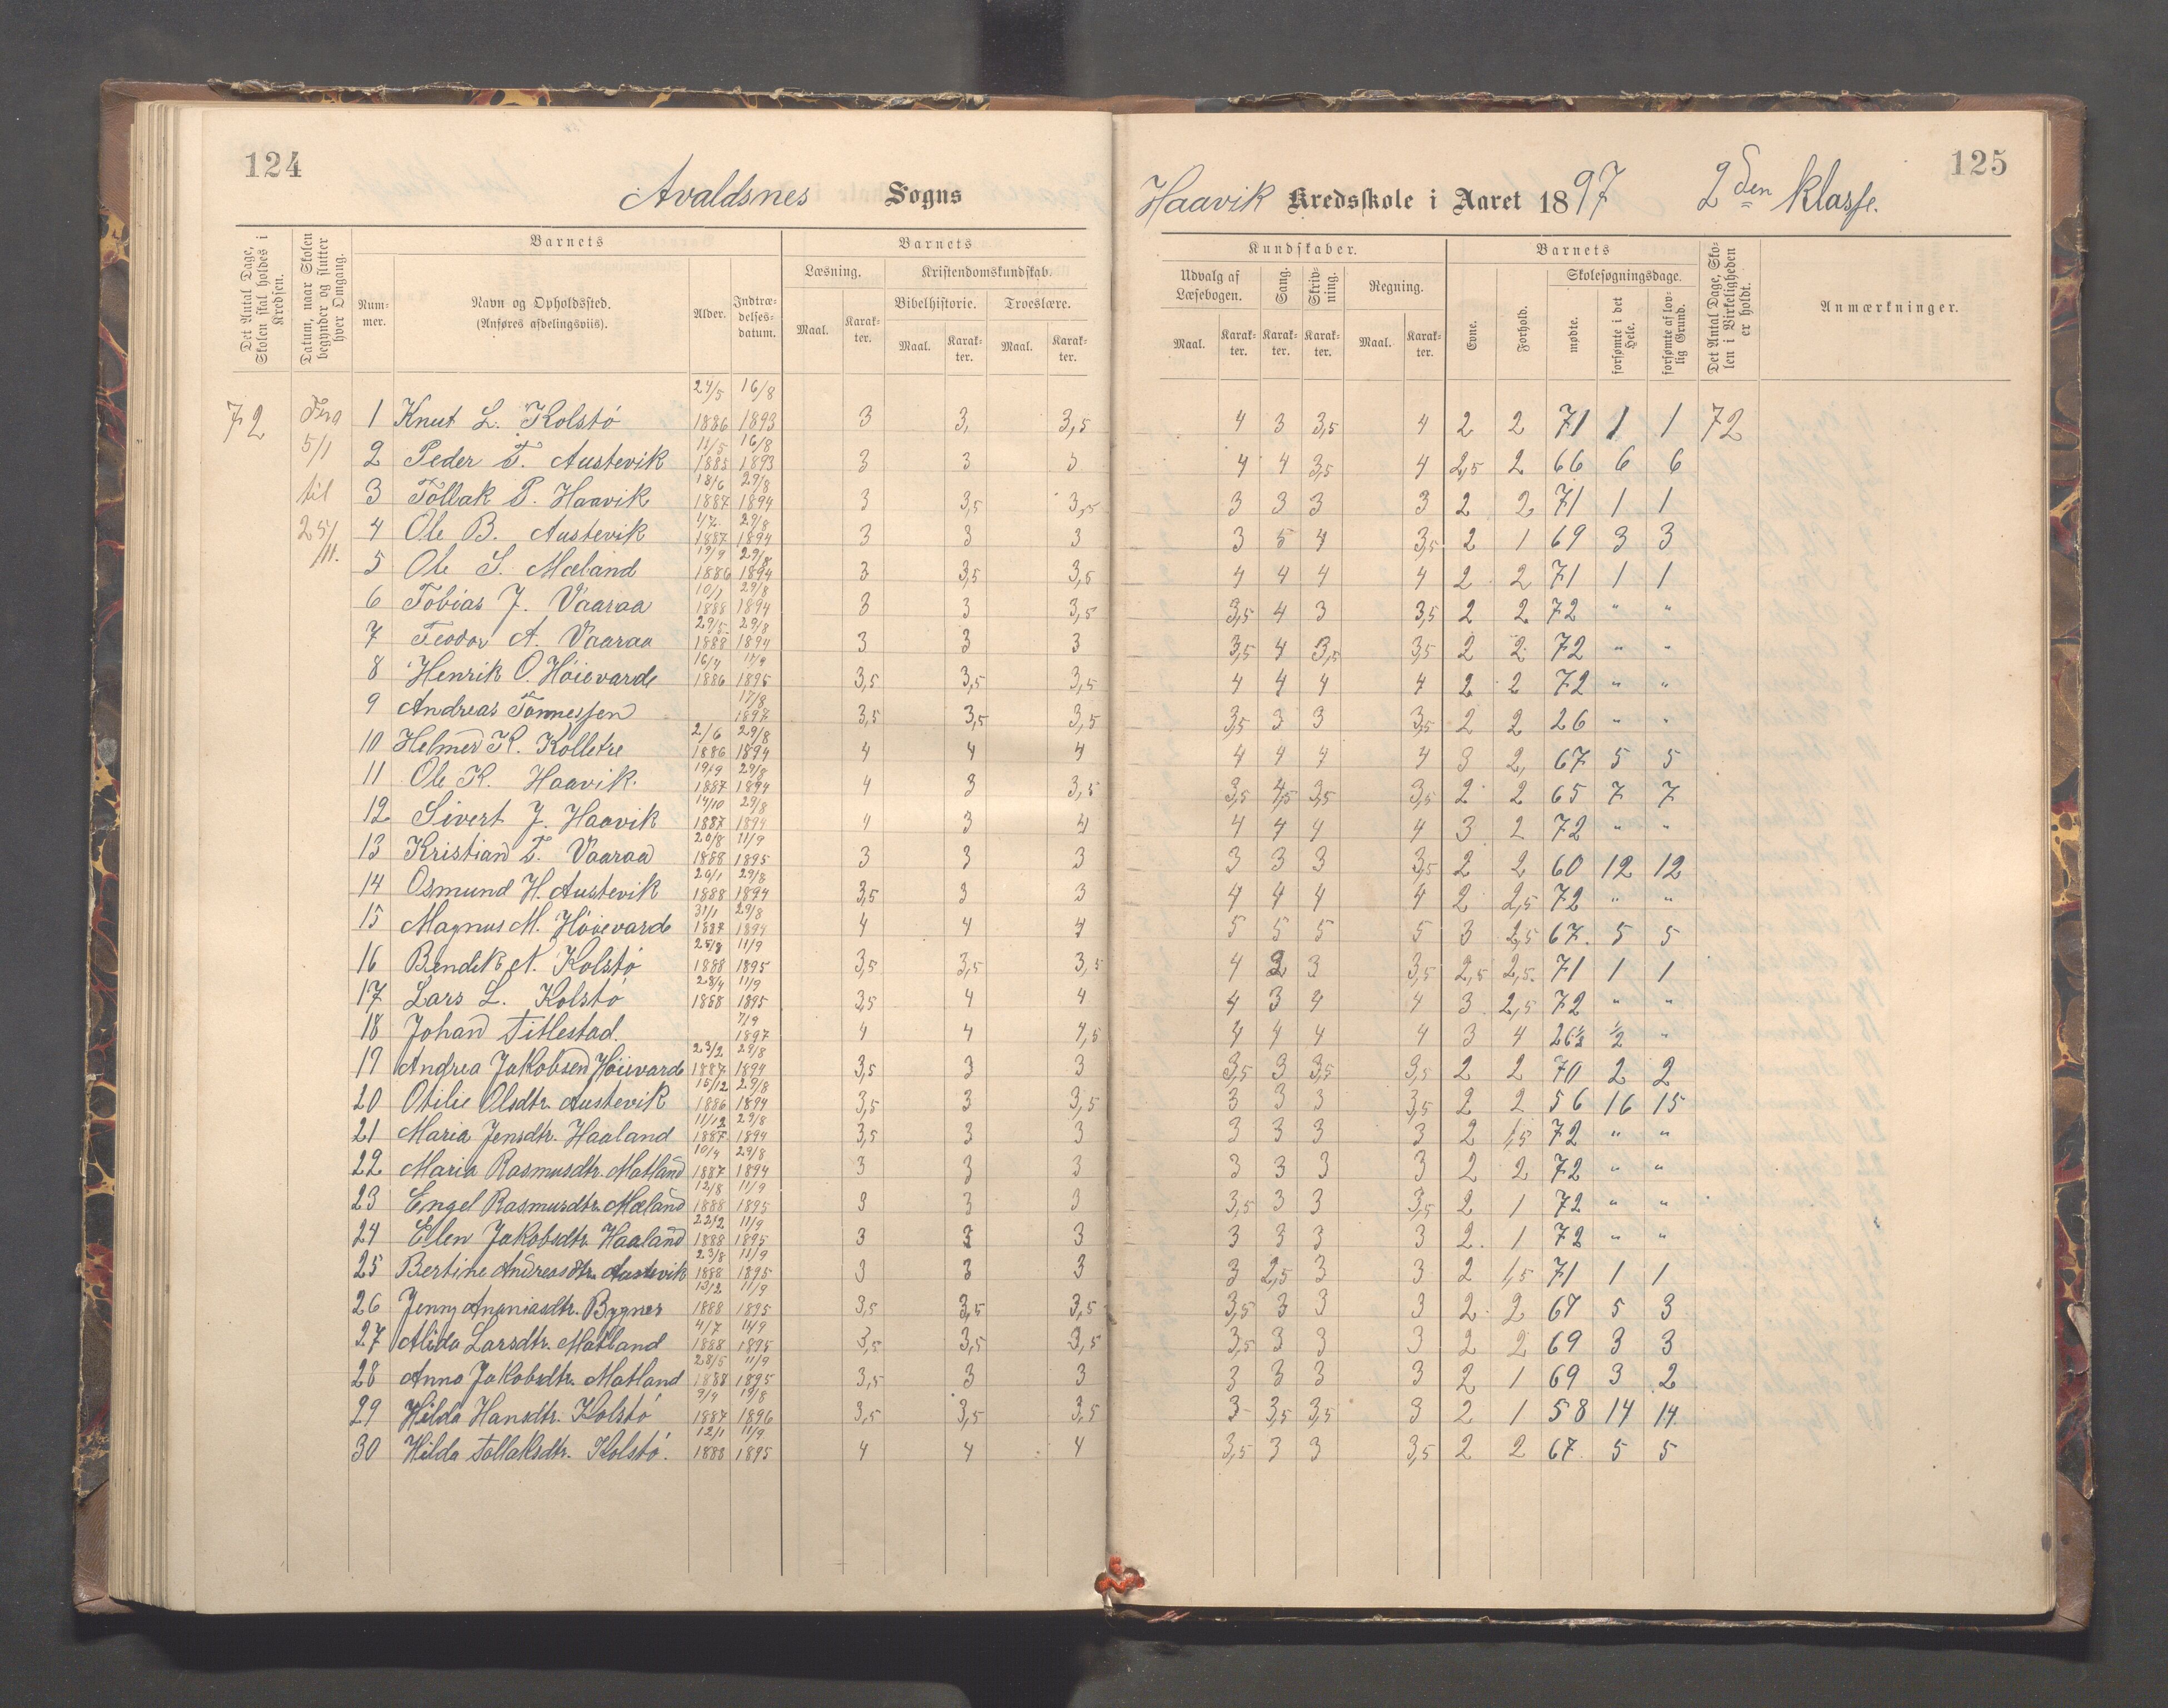 124
Avaldsnes Sogns
Det Antal Dage, Skolen skal holdes i Kredsen.
Datum, naar Skolen begynder og slutter hver Omgang.
Barnets
Nummer.
Navn og Opholdssted. (Anføres afdelingsviis).
Alder.
Indtrædelsesdatum.
Barnets
Læsning.
Kristendomskundskab.
Bibelhistorie.
Troeslære.
Maal. Karakter. Maal. Karakter. Maal. Karakter.
72 Fra 5/1 til 25/11.
1 Knut L. Kolstö 24/5 1886 16/8 1893 3 3, 3,5
2 Peder T. Austevik 11/5 1885 16/8 1893 3 3 3
3 Tollak P. Haavik 18/6 1887 29/8 1894 3 3,5 3,5
4 Ole B. Austevik 4/7 1887 29/8 1894 3 3 3
5 Ole S. Mæland 19/9 1886 29/8 1894 3 3,5 3,5
6 Tobias J. Vaaraa 10/1 1888 29/8 1894 3 3 3,5
7 Teodor A. Vaaraa 29/5 1888 29/8 1894 3 3 3
8 Henrik O. Höievarde 16/4 1886 11/9 1895 3,5 3,5 3,5
9 Andreas Tönnessen 17/8 1897 3,5 3,5 3,5
10 Helmer K. Kolletre 2/6 1886 29/8 1894 4 4 4
11 Ole K. Haavik. 19/9 1887 29/8 1894 4 3 3,5
12 Sivert J. Haavik 14/10 1887 29/8 1894 4 3 4
13 Kristian T. Vaaraa 20/8 1888 11/9 1895 3 3 3
14 Osmund H. Austevik 20/1 1888 29/8 1894 3,5 3 3
15 Magnus M. Höievarde 31/1 1887 29/8 1894 4 4 4
16 Bendik N. Kolstö 25/8 1888 11/9 1895 3,5 3,5 3,5
17 Lars L. Kolstö 28/4 1888 11/9 1895 3,5 4 4
18 Johan Titlestad. 7/9 1897 4 4 4,5
19 Andrea Jakobsen Höievarde 23/2 1887 29/8 1894 3,5 3 3
20 Otilie Olsdtr. Austevik 15/12 1886 29/8 1894 3,5 3 3,5
21 Maria Jensdtr. Haaland 11/12 1887 29/8 1894 3,5 3 3
22 Maria Rasmusdtr. Matland 10/4 1887 29/8 1894 3 3 3
23 Engel Rasmusdtr. Mæland 12/8 1888 11/9 1895 3 3 3
24 Ellen Jakobsdtr. Haaland 22/2 1888 11/9 1895 3 3 3
25 Bertine Andreasdtr. Austevik 23/8 1888 11/9 1895 3 3 3
26 Jenny Ananiasdtr. Bygnes 13/2 1888 11/9 1895 3,5 3,5 3,5
27 Alida Larsdtr. Matland 4/7 1888 11/9 1895 3,5 3,5 3,5
28 Anna Jakobsdtr. Matland 28/5 1888 11/9 1895 3,5 3 3
29 Hilda Hansdtr. Kolstö 9/4 1887 19/8 1896 3,5 3,5 3,5
30 Hilda Tollaksdtr. Kolstö. 12/1 1888 11/9 1895 4 4 4
125
Haavik Kredsskole i Aaret 1897 2den Klasse.
Kundskaber.
Udvalg af Læsebogen.
Sang.
Skrivning.
Regning.
Maal. Karakter. Karakter. Karakter. Maal. Karakter.
Barnets
Evne.
Forhold.
Skolesøgningsdage.
mødte.
forsømte i det Hele.
forsømte af lovlig Grund.
Det Antal Dage, Skolen i Virkeligheden er holdt.
Anmærkninger.
4 3 3,5 4 2 2 71 1 1 72
4 4 3,5 4 2,5 2 66 6 6
3 3 3 3 2 2 71 1 1
3 5 4 3,5 2 1 69 3 3
4 4 4 4 2 2 71 1 1
3,5 4 3 3,5 2 2 72 " "
3,5 4 3,5 3,5 2 2 72 " "
4 4 4 4 2 2 72 " "
3,5 3 3 3,5 2 2 26 " "
4 4 4 4 3 2, 67 5 5
3,5 4,5 3,5 3,5 2 2 65 7 7
4 4 4 4 3 2 72 " "
3 3 3 3,5 2 2 60 12 12
4 4 4 4 2 2,5 72 " "
5 5 5 5 3 2,5 67. 5 5
4 3 3,5 2,5 2,5. 71 1 1
4 3 4 4 3 2,5 72 " "
4 4 4 4 3 4 26½ ½ "
3,5 3 3,5 3,5 2 2 70 2 2
3 3 3 3,5 2 2 56 16 15
3 3 3 3 2 1,5 72 " "
3 3 3 3 2 2 72 " "
3,5 3 3 3,5 2 1 72 " "
3 3 3 3 2. 1 72 " "
3 2,5 3 3 2 1,5 71 1 1
3,5 3 3 3 2. 2 67 5 3
3,5 3 3 3 2 2 69 3 3
3 3 3 3 2 1 69 3 2
3 3,5 3,5 3 2 1 58 14 14
3,5 3 3 3,5 2 2 67. 5 5